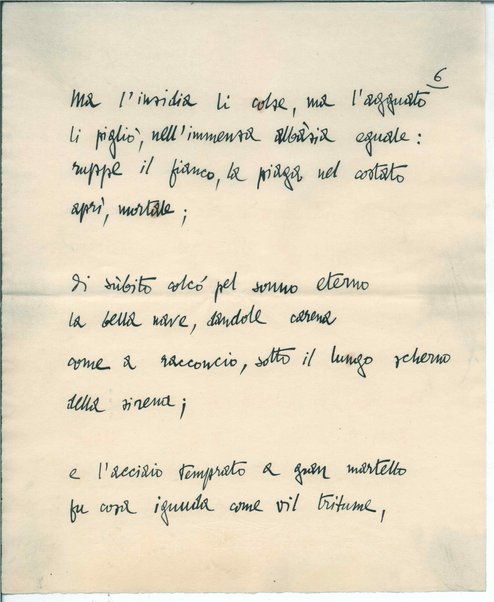 6
Ma l'insidia li colse, ma l'agguato
li pigliò, nell'immensa albàsia eguale:
ruppe il fianco, la piaga nel costato
aprì, mortale;
di sùbito colcò pel sonno eterno
la bella nave, dandole carena
come a racconcio, sotto il lungo scherno
della sirena;
e l'acciaio temprato a gran martello
fu cosa ignuda come vil tritume,